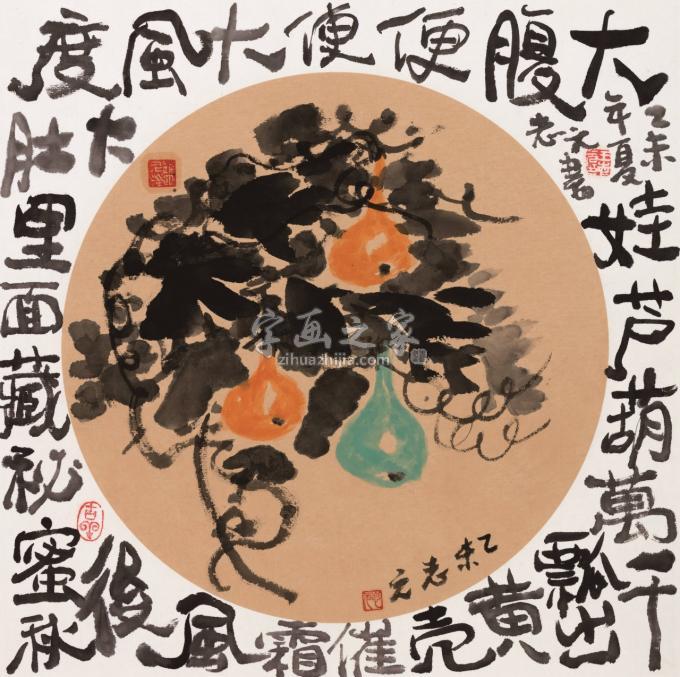 大腹便便大風度
大肚里面藏祕蜜
秋後風霜催壳黄
瓢出千萬葫芦娃
乙未年夏志元書
乙未志元
字画之家
zihuazhijia.com